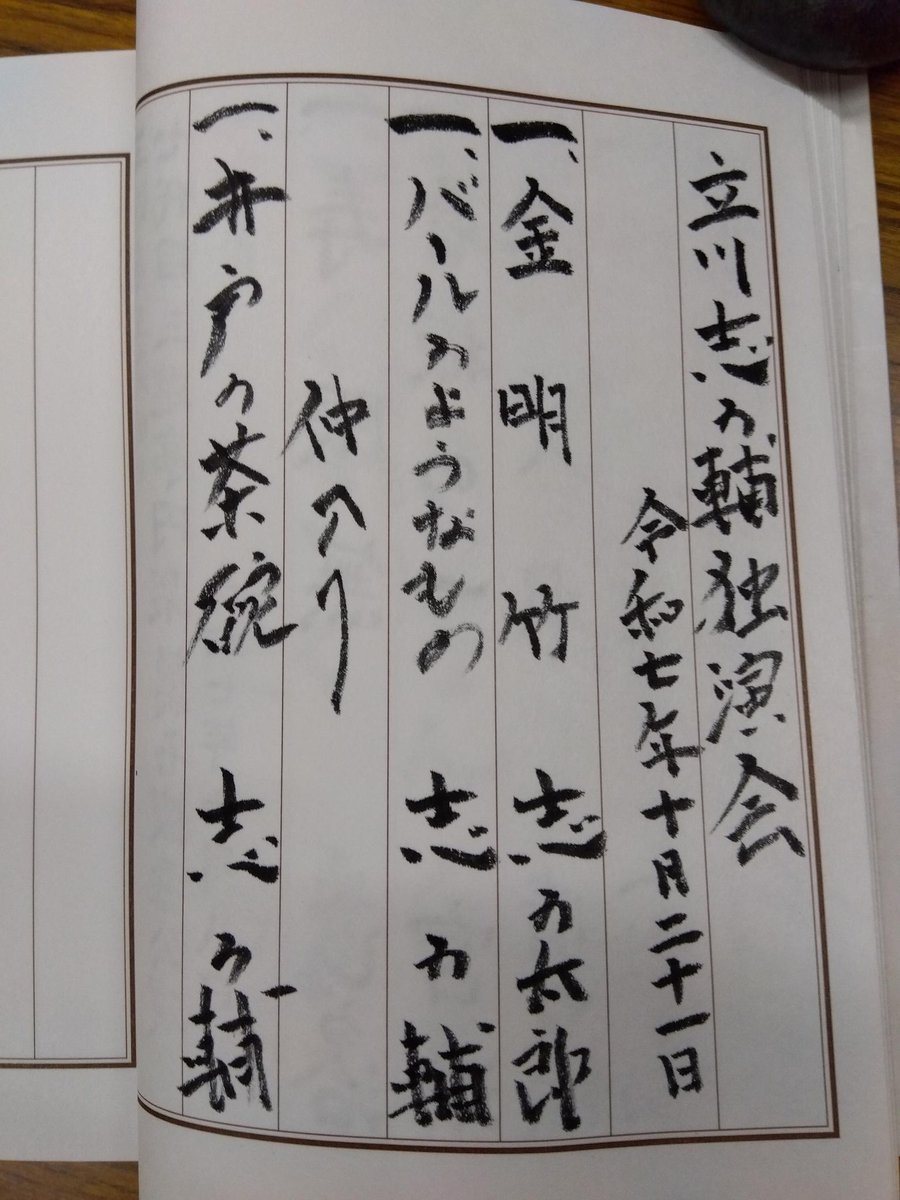 立川志の輔独演会
令和七年十月二十一日
一、金明竹 志の太郎
一、バールのようなもの 志の輔
仲入り
一、井戸の茶碗 志の輔